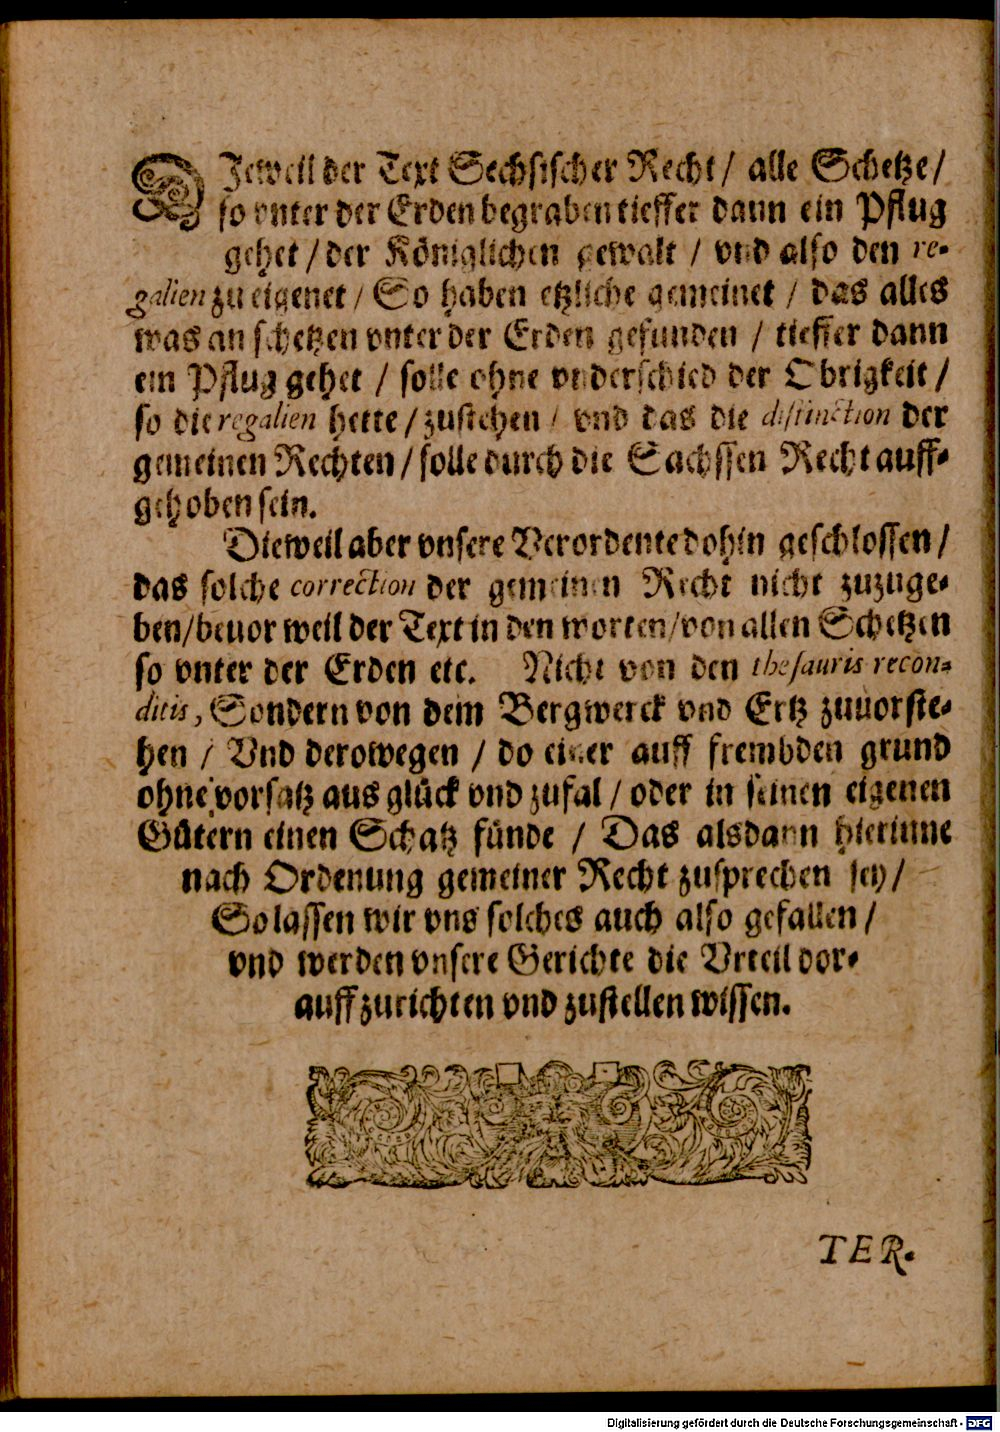 DJeweil der Text Sechsischer Recht / alle Schetze /
so vnter der Erden begraben tieffer dann ein Pflug
gehet / der Königlichen gewalt / vnd also den re-
galien zu eigenet / So haben etzliche gemeinet / das alles
was an schetzen vnter der Erden gefunden / tieffer dann
ein Pflug gehet / solle ohne vnderschied der Obrigkeit /
so die regalien hette / zustehen / vnd das die distinction der
gemeinen Rechten / solle durch die Sachssen Recht auff-
gehoben sein.
Dieweil aber vnsere Verordente dohin geschlossen /
das solche correction der gemeinen Recht nicht zuzuge-
ben / beuor weil der Text in den worten / von allen Schetzen
so vnter der Erden etc. Nicht von den thesauris recon-
ditis, Sondern von dem Bergwerck vnd Ertz zuuorste-
hen / Vnd derowegen / do einer auff frembden grund
ohne vorsatz aus glück vnd zufal / oder in seinen eigenen
Gütern einen Schatz fünde / Das alsdann hierinne
nach Ordenung gemeiner Recht zusprechen sey /
So lassen wir vns solches auch also gefallen /
vnd werden vnsere Gerichte die Vrteil dor-
auff zurichten vnd zustellen wissen.
TER.
Digitalisierung gefördert durch die Deutsche Forschungsgemeinschaft - DFG